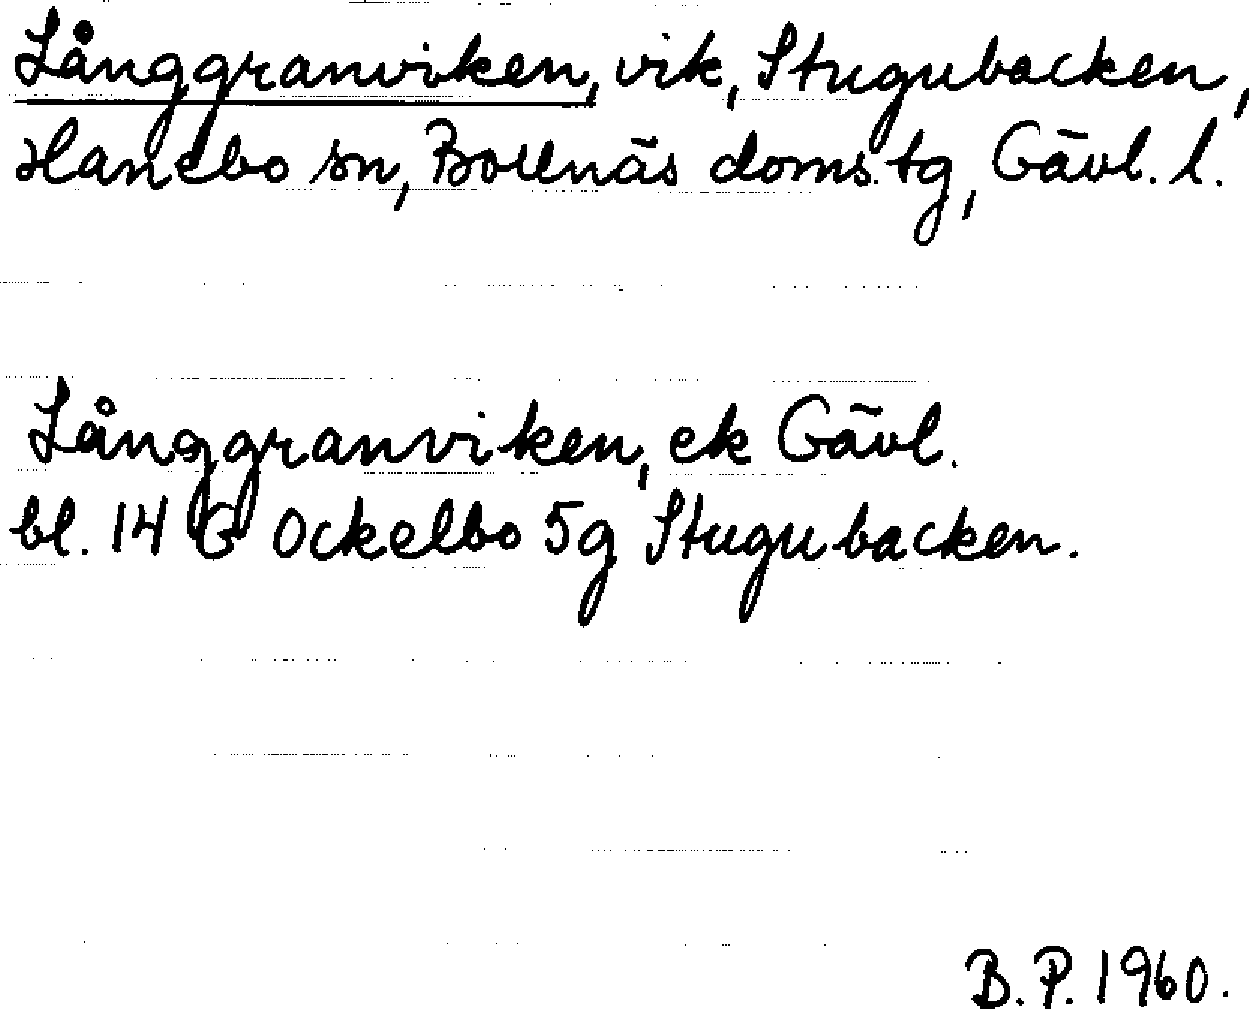 Långgranviken, vik, Stugubacken,
Hanebo sn, Bollnäs doms.tg, Gävl. l.
Långgranviken, ek Gävl.
bl. 14 G Ockelbo 5g Stugubacken.
B.P. 1960.